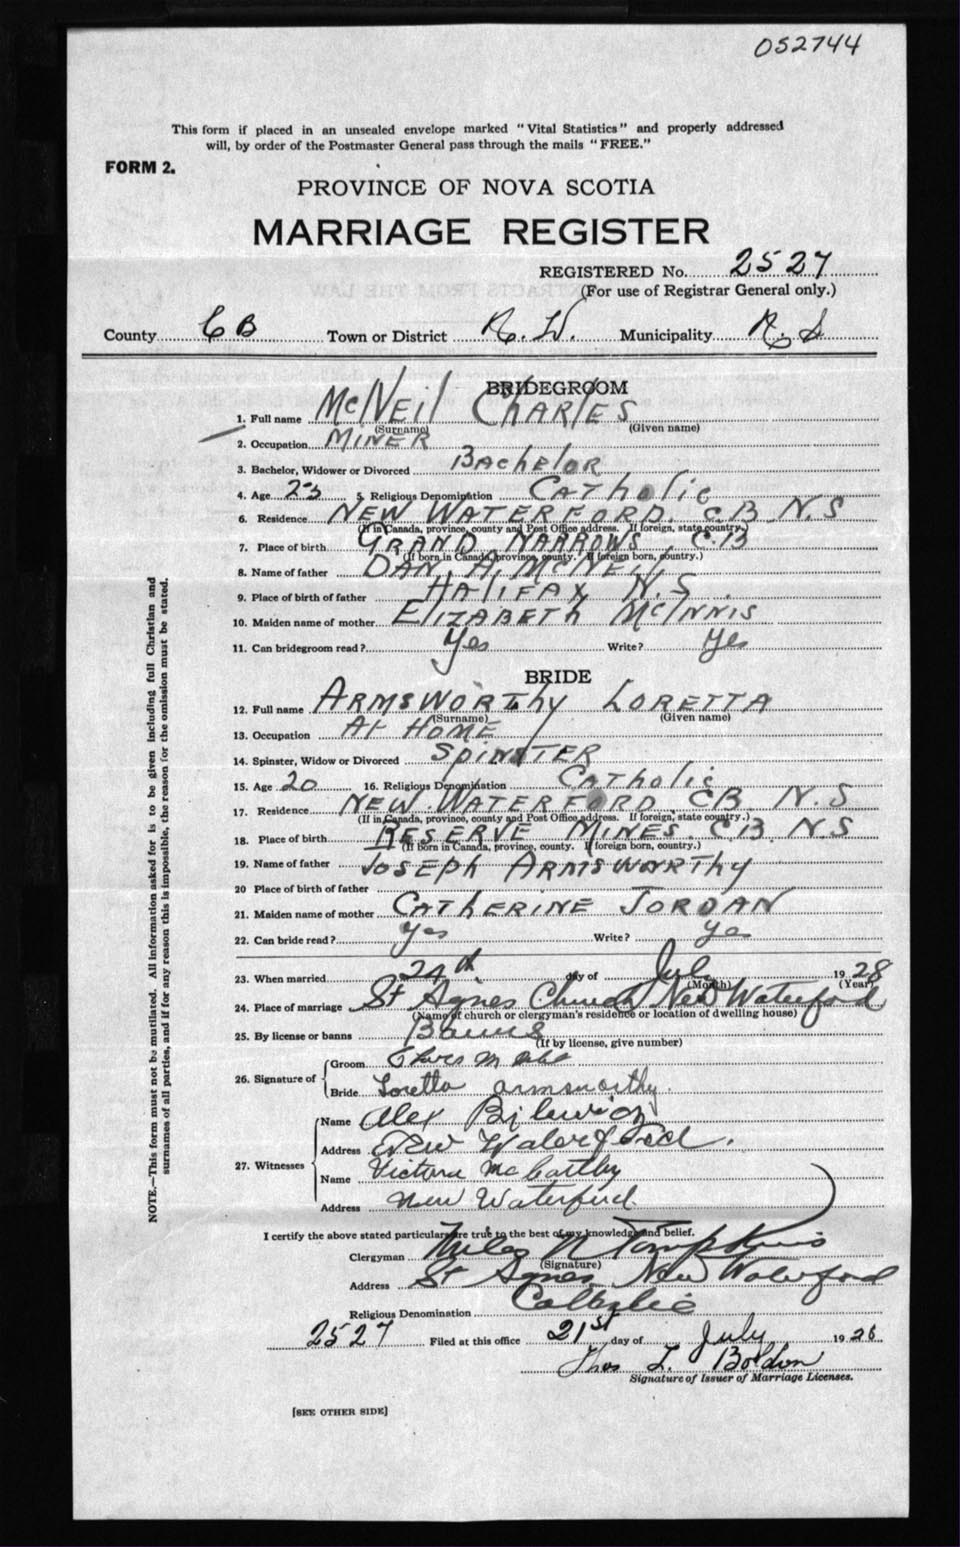 052744
This form if placed in an unsealed envelope marked "Vital Statistics" and properly addressed
will, by order of the Postmaster General pass through the mails "FREE."
FORM 2.
PROVINCE OF NOVA SCOTIA
MARRIAGE REGISTER
REGISTERED No. 2527
(For use of Registrar General only.)
County CB Town or District N.W. Municipality
BRIDEGROOM
1. Full name McNeil Charles
(Surname) (Given name)
2. Occupation Miner
3. Bachelor, Widower or Divorced Bachelor
4. Age 23 5. Religious Denomination Catholic
6. Residence New Waterford. CB N.S
(If in Canada, province, county and Post Office address. If foreign, state country.)
7. Place of birth Grand Narrows C.B
(If born in Canada, province, county. If foreign born, country.)
8. Name of father Dan. A. McNeil
9. Place of birth of father Halifax N.S.
10. Maiden name of mother Elizabeth McInnis
11. Can bridegroom read? Yes Write? Yes
BRIDE
12. Full name Armsworthy Loretta
(Surname) (Given name)
13. Occupation At Home
14. Spinster, Widow or Divorced Spinster
15. Age 20 16. Religious Denomination Catholic
17. Residence New Waterford CB N.S
(If in Canada, province, county and Post Office address. If foreign, state country.)
18. Place of birth Reserve Mines. CB N.S
(If born in Canada, province, county. If foreign born, country.)
19. Name of father Joseph Armsworthy
20 Place of birth of father
21. Maiden name of mother Catherine Jordan
22. Can bride read? Yes Write? Yes
23. When married 24th day of July 1928
(Month) (Year)
24. Place of marriage St Agnes Church New Waterford
(Name of church or clergyman's residence or location of dwelling house)
25. By license or banns Banns
(If by license, give number)
26. Signature of Groom
Bride Loretta Armsworthy.
27. Witnesses Name Alex
Address New Waterford.
Name Victoria McCarthy
Address New Waterford
I certify the above stated particulars are true to the best of my knowledge and belief.
Clergyman Miles N Tompkins
(Signature)
Address St Agnes New Waterford
Religious Denomination Catholic
2527 Filed at this office 21st day of July 1928
Thos L. Boldon
Signature of Issuer of Marriage Licenses.
[SEE OTHER SIDE]
NOTE.—This form must not be mutilated. All information asked for is to be given including full Christian and
surnames of all parties, and if for any reason this is impossible, the reason for the omission must be stated.